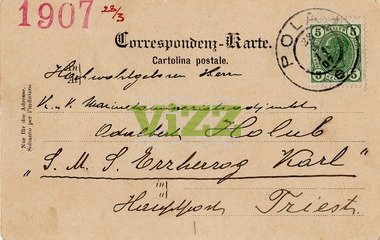 1907 28/3
Correspondenz-Karte.
Cartolina postale.
POLA
5 5
Hochwohlgeboren Herrn
An
A
K. u. K.
Nur für die Adresse.
Soltanto per l'indirizzo.
Holub
VIZZ
"S. M. S. Erzherzog Karl"
in
a
Hauptpost Triest.